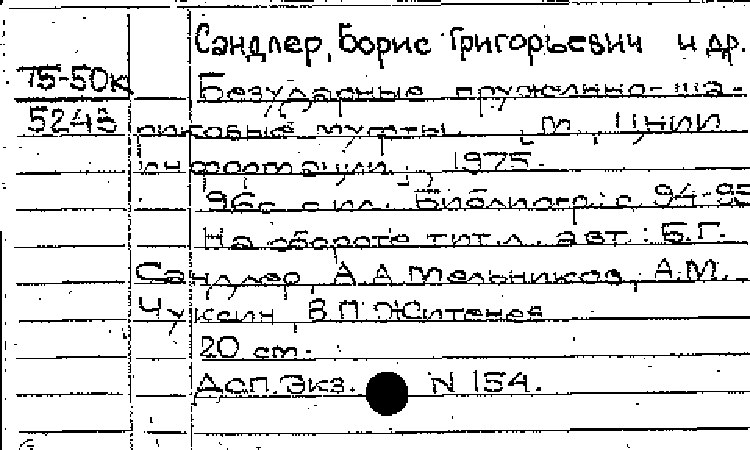 Сандлер, Борис Григорьевич и др.
75-50к Безударные пружинно-ша-
5243 риковые муфты. [М., ЦНИИ
информации], 1975.
96с. с ил. Библиогр.: с. 94-95
На обороте тит.л. авт.: Б.Г.
Сандлер, А.А.Мельников, А.М.
Чуксин, В.П.Житенев
20 см.
Доп. Экз. N 154.